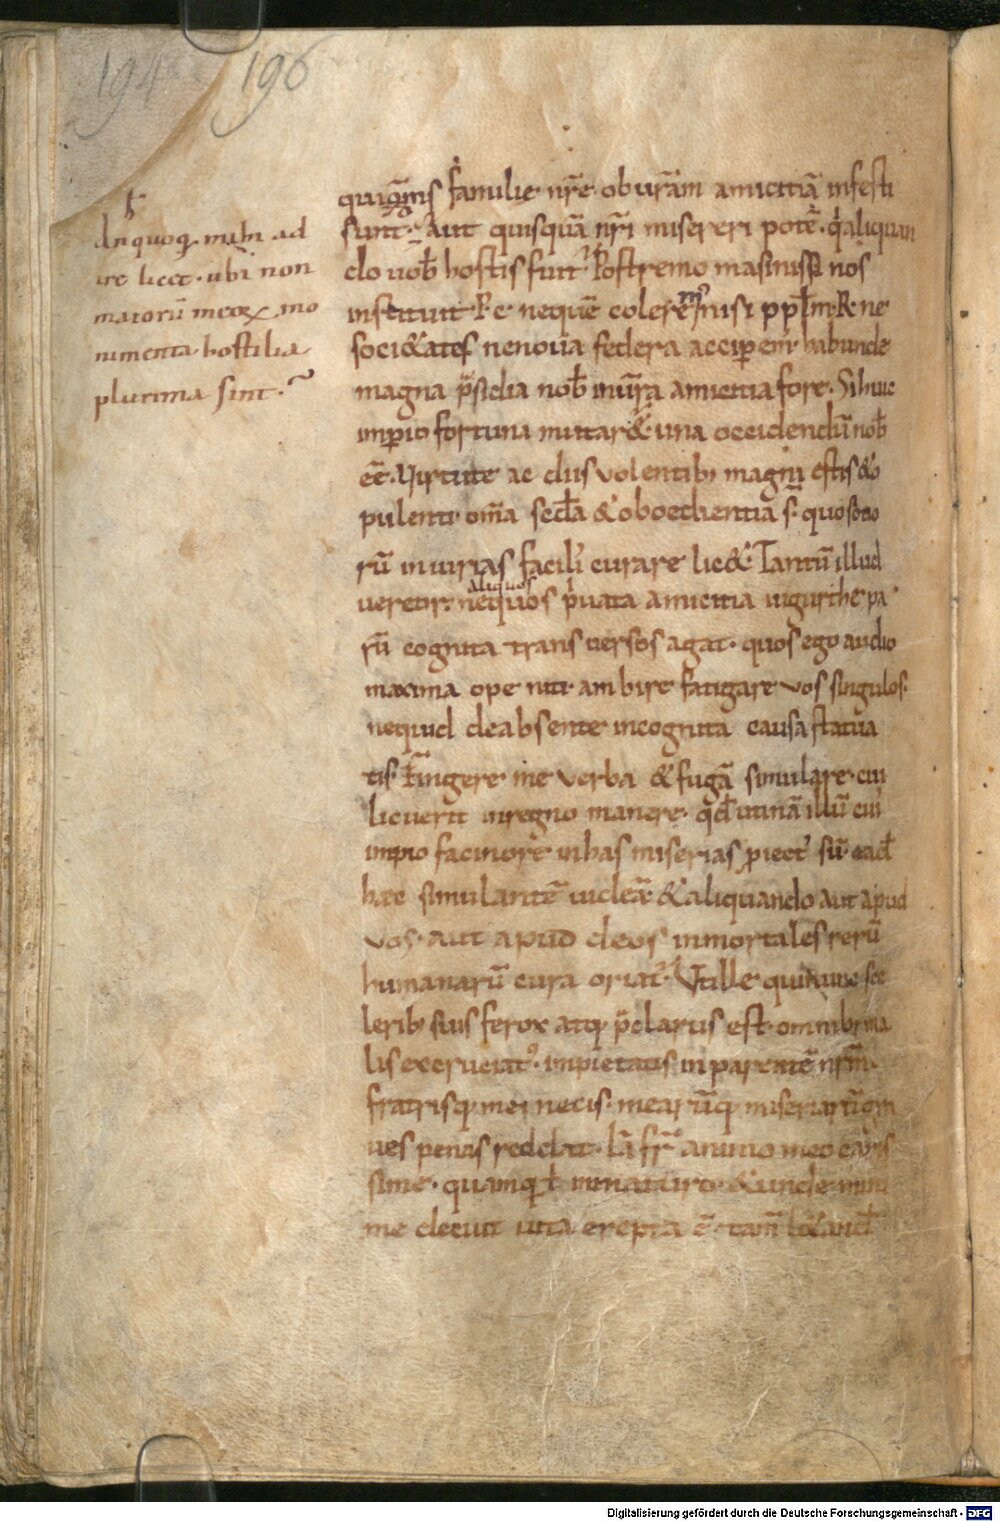 194 196
An quoq. mihi ad
ire licet. ubi non
maiorū meoꝝ mo
numenta hostilia
plurima sint.
familie nr̄e ob ur̄am amicitiā infesti
sunt. Aut quisquā nr̄i misereri potē. q̇ aliquan
do uob̄ hostis fuit. Postremo masinissa nos
instituit P. c. nequē coleremꝰ nisi ppl̄m. R. ne
soci&ates nenoua federa acciperem. habunde
magna p̄sidia nob̄ inur̄a amicitia fore. Si huic
imperio fortuna mutar&. una occidendū nob̄
eē. Virtute ac diis volentib; magni estis & o
pulenti. om̄a secd̄a & oboedientia s̄. quo socio
rū iniurias facili curare lic&. Tantū illud
uereor. ne quos aliquos p̄uata amicitia iugurthe pa
rū cognita transuersos agat. quos ego audio
maxima ope niti. ambire fatigare vos singulos.
nequid deabsente incognita causa statua
tis. fingere me verba & fugā simulare. cui
licuerit inregno manere. qd̄ utinā illū cuiꝰ
impio facinore inhas miserias p̱iectꝰ sū. ead̄
haec simulantē uideā. & aliquando aut apud
vos. aut apud deos inmortales rerū
humanarū cura oriatꝰ. Vt ille qui nunc sce
lerib; suis ferox atq; p̄clarus est. omnib; ma
lis excruciatꝰ. impietatis in parentē nr̄m.
fratrisq; mei necis. mearūq; miseriarū gra
ues penas reddat. Iā fr̄ animo meo caris
sime. quamq̄ t̄ inmaturo. & unde mini
me decuit uita erepta ē. tam̄ l&and̄